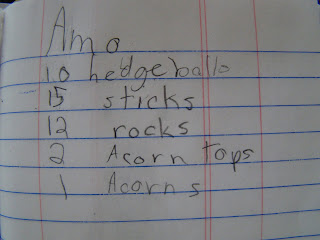 Amo
10 hedgeballs
15 sticks
12 rocks
2 Acorn tops
1 Acorns